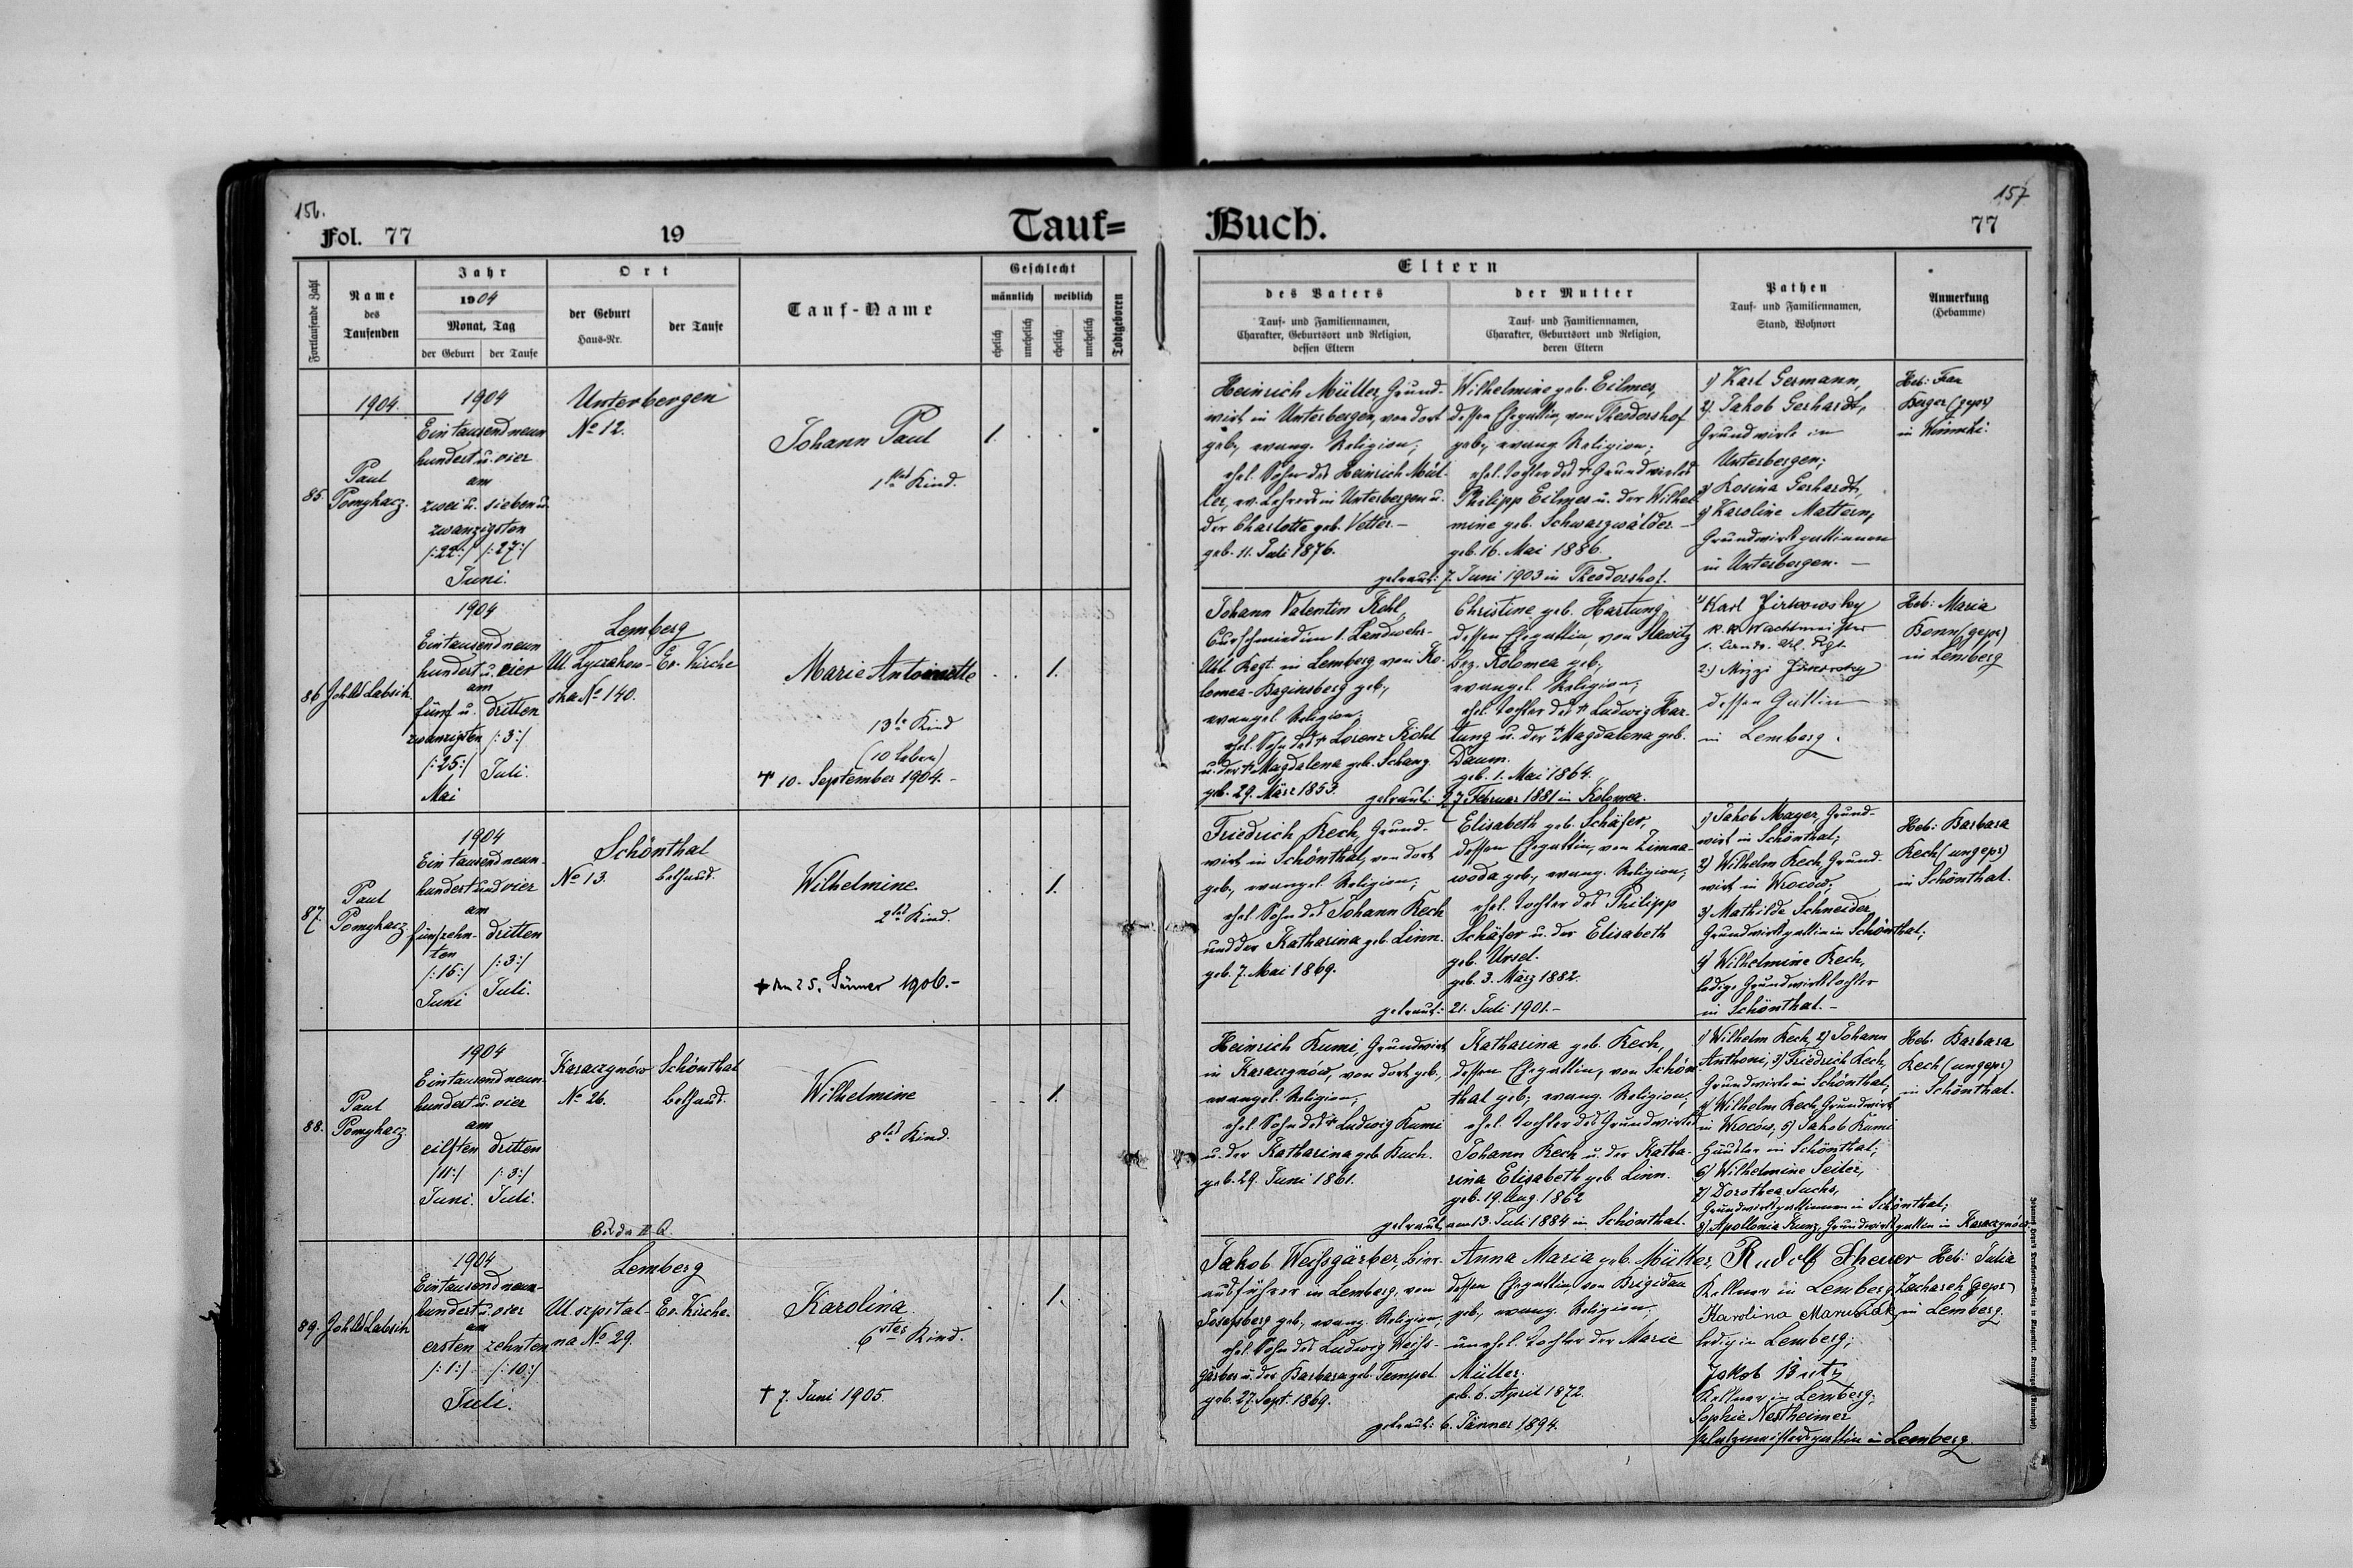 156.
157
Fol. 77
19
Tauf=
Buch.
77
Fortlaufende Zahl
Name
des
Taufenden
Jahr
1904
Monat, Tag
der Geburt
der Taufe
Ort
der Geburt
Haus-Nr.
der Taufe
Tauf-Name
Geschlecht
männlich
weiblich
ehelich
unehelich
ehelich
unehelich
Todtgeboren
Eltern
des Vaters
Tauf- und Familiennamen,
Charakter, Geburtsort und Religion,
dessen Eltern
der Mutter
Tauf- und Familiennamen,
Charakter, Geburtsort und Religion,
deren Eltern
Pathen
Tauf- und Familiennamen,
Stand, Wohnort
Anmerkung
(Hebamme)
1904.
85.
Paul
Pomykacz.
1904
Ein tausend neun
hundert u. vier
am
zwei u. sieben u.
zwanzigsten
/:22:/ /:27:/
Juni.
Unterbergen
No 12.
Johann Paul
1tes Kind.
1.
Heinrich Müller, Grund-
wirt in Unterbergen, von dort
geb., evang. Religion;
ehel. Sohn des Heinrich Mül-
ler, ev. Lehrers in Unterbergen u.
der Charlotte geb. Vetter. -
geb. 11. Juli 1876.
Wilhelmine geb. Eilmes,
dessen Ehegattin, von Theodorshof
geb., evang Religion;
ehel. Tochter des + Grundwirtes
Philipp Eilmes u. der Wilhel-
mine geb. Schwarzwälder -
geb. 16. Mai 1886.
getraut: 7. Juni 1903 in Theodorshof.
1) Karl Germann,
2) Jakob Gerhardt,
Grundwirte in
Unterbergen;
3) Rosina Gerhardt,
4) Karoline Mattern,
Grundwirtsgattinnen
in Unterbergen. -
Heb: Frau
Berger (gepr)
in Winniki.
86
Joh Ud Labsik
1904
Ein tausend neun
hundert u. vier
am
fünf u. dritten
zwanzigsten /:3:/
/:25:/ Juli.
Mai
Lemberg
Ul. Lyczakow-
ska No 140.
Ev. Kirche
Marie Antoinette
13te Kind
(10 leben)
+ 10. September 1904. -
1.
Johann Valentin Kohl,
Curschmied im 1. Landwehr-
Uhl. Regt. in Lemberg von Ko-
lomea-Baginsberg geb.,
evangel Religion;
ehel. Sohn des + Lorenz Kohl
u. der + Magdalena geb. Schang
geb. 29. März 1853.
Christine geb. Hartung,
dessen Ehegattin, von Slawitz
Bez. Kolomea geb.,
evangel. Religion;
ehel. Tochter des + Ludwig Har-
tung u. der + Magdalena geb.
Daum.
geb. 1. Mai 1864.
getraut: 27. Februar 1881 in Kolomea.
1) Karl Jirkowsky
k. k. Wachtmeister
1. Landw. Uhl. Rgt.
2.) Mizzi Jirkowsky
dessen Gattin
in Lemberg.
Heb: Maria
Bonn (gepr)
in Lemberg
87.
Paul
Pomykacz
1904
Ein tausend neun-
hundert und vier
am
fünfzehn- dritten
ten
/:15:/ /:3:/
Juni Juli.
Schönthal
No 13.
Bethaus.
Wilhelmine.
2tes Kind.
+ am 25. Jänner 1906. -
1.
Friedrich Kech, Grund-
wirt in Schönthal, von dort
geb., evangel Religion;
ehel Sohn des Johann Kech
und der Katharina geb. Linn.
geb. 7. Mai 1869.
Elisabeth geb. Schäfer,
dessen Ehegattin, von Zimna-
woda geb., evang. Religion;
ehel. Tochter des Philipp
Schäfer u. der Elisabeth
geb. Ursel.
geb. 3. März 1882.
getraut: 21. Juli 1901. -
1) Jakob Mayer, Grund-
wirt in Schönthal;
2) Wilhelm Kech, Grund-
wirt in Wrocow;
3) Mathilde Schneider,
Grundwirtsgattin in Schönthal;
4) Wilhelmine Kech,
ledige Grundwirtstochter
in Schönthal. -
Heb: Barbara
Kech (ungepr)
in Schönthal.
88.
Paul
Pomykacz.
1904
Ein tausend neun-
hundert u. vier
am
eilften dritten
/11:/ /:3:/
Juni. Juli.
Karaczynów
No 26.
Schönthal
Bethaus.
Wilhelmine
8tes Kind.
1.
Heinrich Kumi, Grundwirt
in Karaczynow, von dort geb.,
evangel. Religion;
ehel. Sohn des + Ludwig Kumi
u. der Katharina geb Kuch.
geb. 29. Juni 1861.
Katharina geb. Kech,
dessen Ehegattin, von Schön-
thal geb., evang. Religion;
ehel. Tochter des Grundwirtes
Johann Kech u. der Katha-
rina Elisabeth geb. Linn.
geb. 19. Aug. 1862
getraut am 13. Juli 1884 in Schönthal.
1) Wilhelm Kech, 2) Johann
Anthoni, 3) Friedrich Kech,
Grundwirte in Schönthal,
4) Wilhelm Kech, Grundwirt
in Wrocow, 5) Jakob Kumi
Häusler in Schönthal;
6) Wilhelmine Seiler,
7) Dorothea Fuchs,
Grundwirtsgattinnen in Schönthal;
8) Apollonia Kunz, Grundwirtsgattin in Karaczynów
Heb: Barbara
Kech (ungepr)
in Schönthal.
89.
Joh Ud Labsik
1904
Ein tausend neun-
hundert u. vier
am
ersten zehnten
/:1:/ /:10:/
Juli.
Lemberg
Ul. szpital-
na No 29.
Ev. Kirche.
Karolina
6stes Kind.
† 7. Juni 1905
1.
Jakob Weißgärber, Bier-
ausführer in Lemberg, von
Josefsberg geb., evang. Religion;
ehel. Sohn des Ludwig Weiß-
gärber u. der Barbara geb. Tempel
geb. 27. Sept. 1869.
Anna Maria geb. Müller,
dessen Ehegattin, von Brigidau
geb., evang. Religion;
unehel. Tochter der Marie
Müller.
geb. 6. April 1872.
getraut: 6. Jänner 1894.
Rudolf Sheurer
Kellner in Lemberg;
Karolina Marusiak,
ledig in Lemberg;
Jakob Butz
Kellner in Lemberg;
Sophie Nestheimer
in Lemberg.
Heb: Julia
Zacharek (gepr)
in Lemberg.